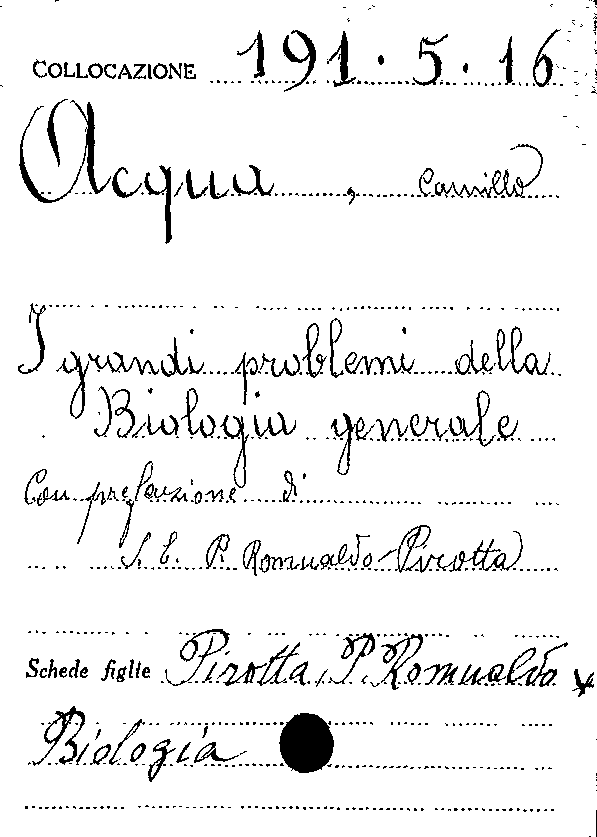 COLLOCAZIONE 191.5.16
Acqua, Camillo
I grandi problemi della
Biologia generale
Con prefazione di
S. E. P. Romualdo Pirotta
Schede figlie Pirotta, P. Romualdo
Biologia